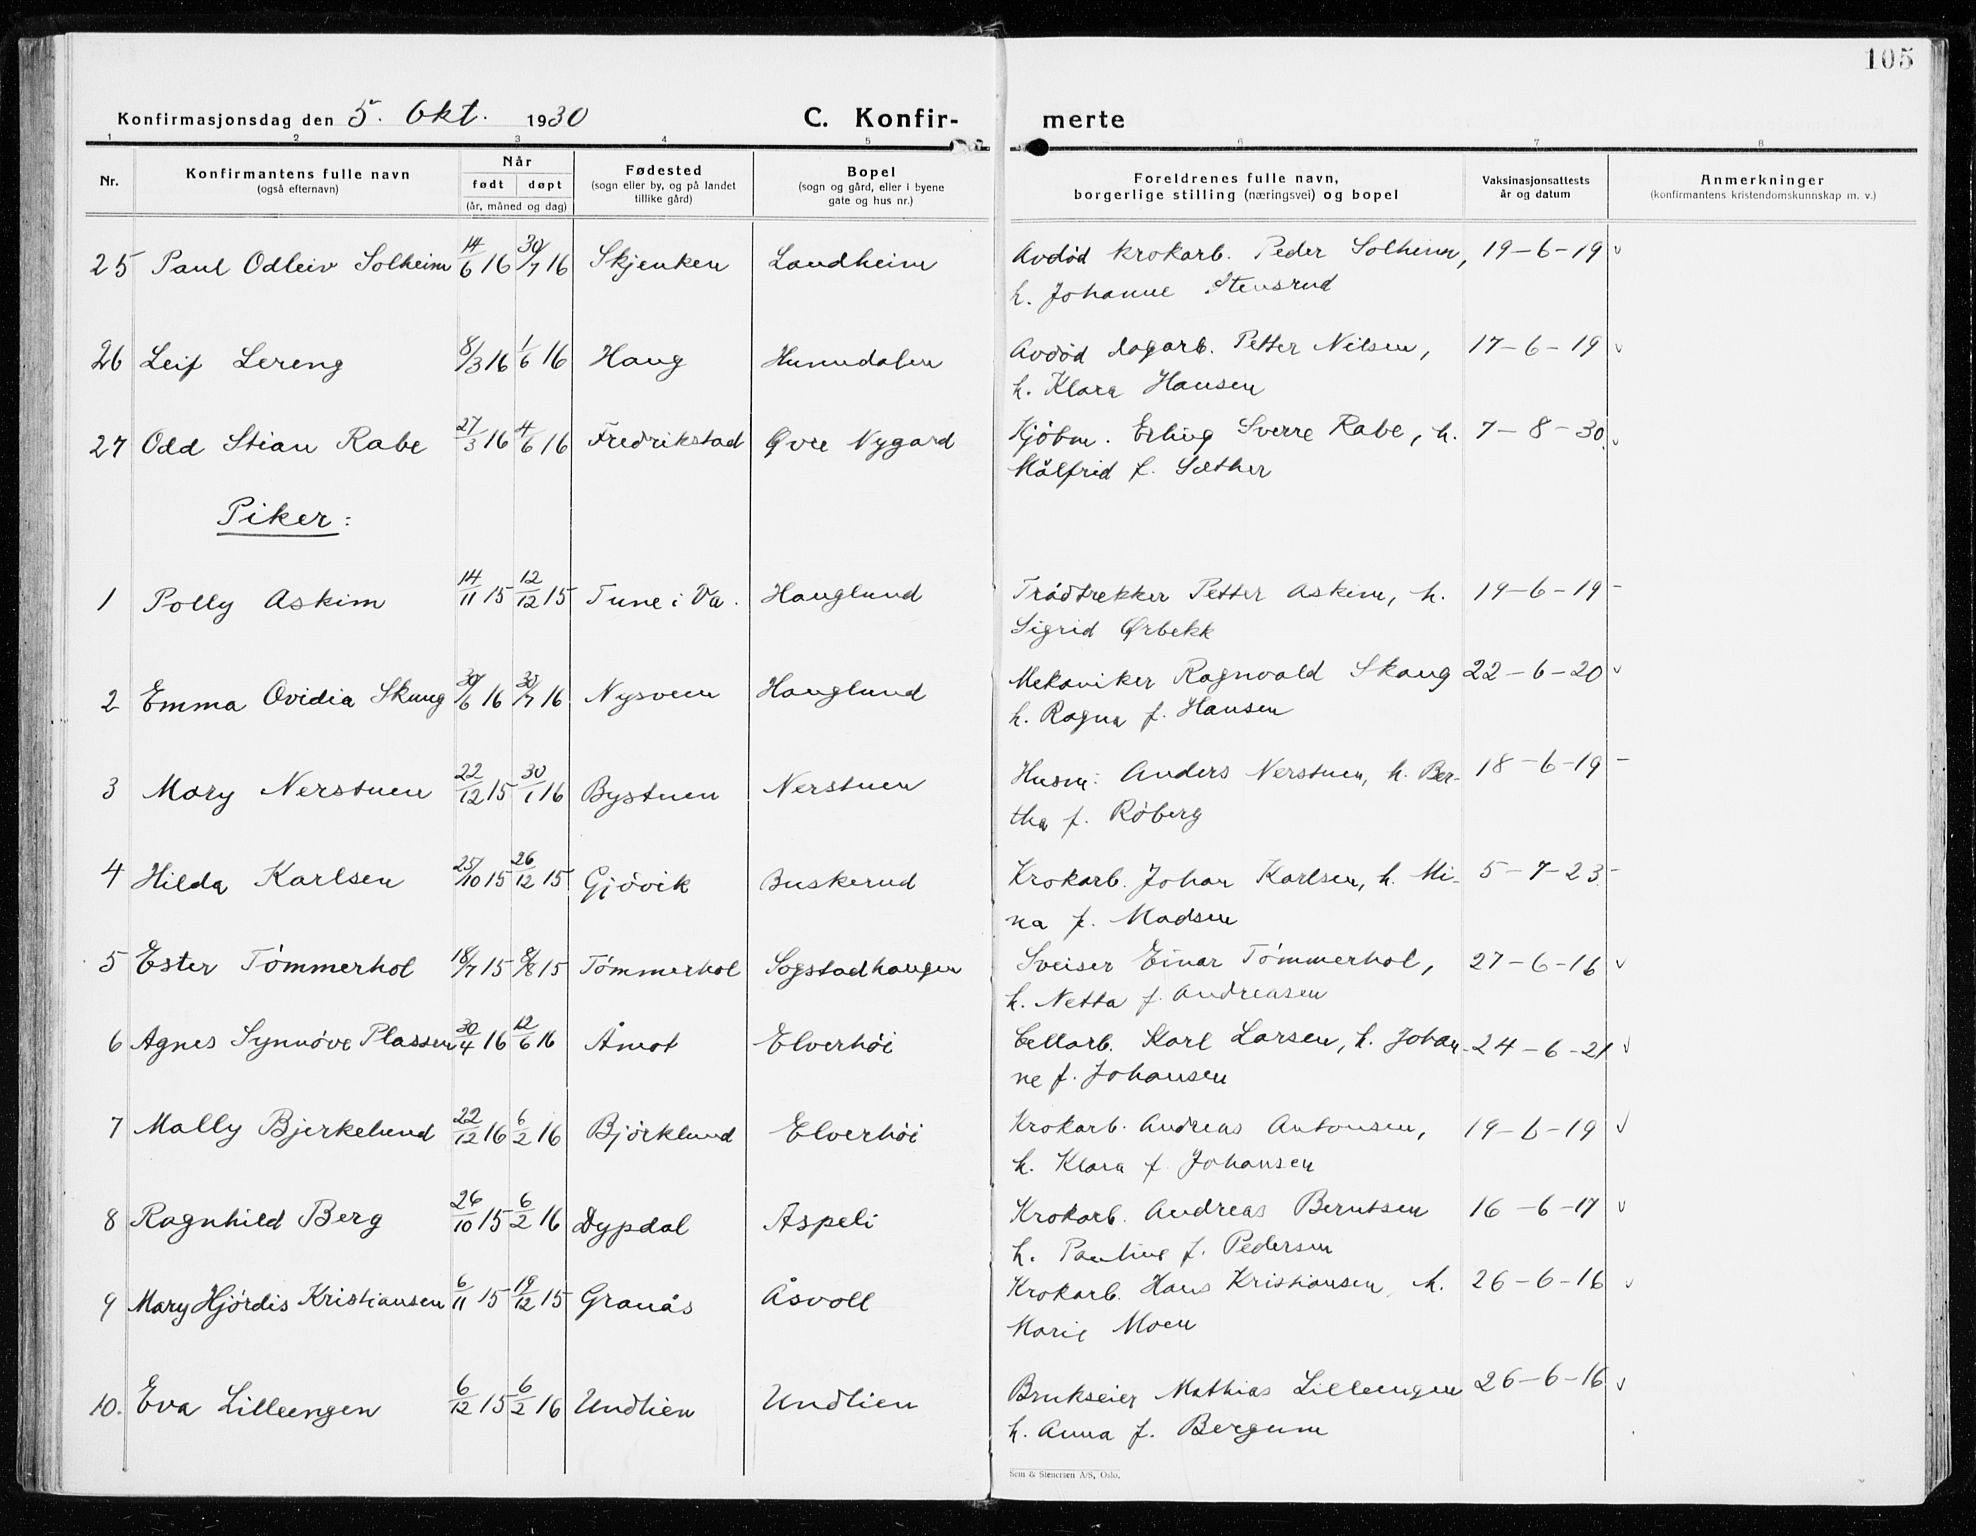 105
Konfirmasjonsdag den 5. Okt. 1930 C. Konfir- merte
1 2 3 4 5 6 7 8
Nr. Konfirmantens fulle navn (også efternavn) Når født døpt (år, måned og dag) Fødested (sogn eller by, og på landet tillike gård) Bopel (sogn og gård, eller i byene gate og hus nr.) Foreldrenes fulle navn, borgerlige stilling (næringsvei) og bopel Vaksinasjonsattests år og datum Anmerkninger (konfirmantens kristendomskunnskap m. v.)
25 Paul Odleiv Solheim 14/6 16 30/7 16 Skjenken Landheim Avdød krokarb. Peder Solheim, 19-6-19 v
h. Johanne Stensrud
26 Leif Lereng 8/3 16 1/6 16 Haug Hunndalen Avdød dagarb. Petter Nilsen, 17-6-19 v
h. Klara Hansen
27 Odd Stian Rabe 27/3 16 4/6 16 Fredrikstad Øvre Nygard Kjøbm. Erling Sverre Rabe, h. 7-8-30. v
Målfrid f. Sæther
Piker:
1 Polly Askim 14/11 15 12/12 15 Tune i Va. Hauglund Trådtrekker Petter Askim, h. 19-6-19 -
Sigrid Ørbekk
2 Emma Ovidia Skaug 30/6 16 30/7 16 Nysveen Hauglund Mekaniker Ragnvald Skaug 22-6-20 v
h. Ragna f. Hansen
3 Mary Nerstuen 22/12 15 30/1 16 Bystuen Nerstuen Husm. Anders Nerstuen, h. Ber- 18-6-19 -
tha f. Røberg
4 Hilda Karlsen 25/10 15 26/12 15 Gjøvik Buskerud Krokarb. Johan Karlsen, h. Mi- 5-7-23. -
na f. Madsen
5 Ester Tømmerhol 18/7 15 8/8 15 Tømmerhol Sogstadhaugen Sveiser Einar Tømmerhol, 27-6-16 v
h. Netta f. Andreasen
6 Agnes Synnøve Plassen 30/4 16 12/6 16 Åmot Elverhøi Cellarb. Karl Larsen, h. Johan- 24-6-21 v
ne f. Johansen
7 Mally Bjerkelund 22/12 16 6/2 16 Bjørklund Elverhøi Krokarb. Andreas Antonsen, 19-6-19 v
h. Klara f. Johansen
8 Ragnhild Berg 26/10 15 6/2 16 Dypdal Aspeli Krokarb. Andreas Berntsen 16-6-17 v
h. Pauline f. Pedersen
9 Mary Hjördis Kristiansen 6/11 15 19/12 15 Granås Åsvoll Krokarb. Hans Kristiansen, h. 26-6-16 v
Marie Moen
10. Eva Lilleengen 6/12 15 6/2 16 Undlien Undlien Brukseier Mathias Lilleengen 26-6-16 v
h. Anna f. Bergum
Sem & Stenersen A/S, Oslo.